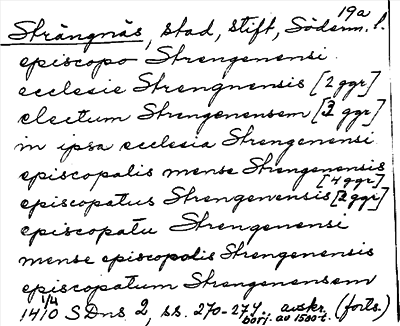 19a
Strängnäs, stad, stift, Söderm. l.
episcopo Strengenensi
ecclesie Strengnensis [2 ggr]
electum Strengenensem [3 ggr]
in ipsa ecclesia Strengenensi
episcopalis mense Strengenensis
[4 ggr]
episcopatus Strengenensis [2 ggr]
episcopatu Strengenensi
mense episcopalis Strengenensis
episcopatum Strengenensem
14 1/4 10 SDns 2, ss. 270-274. avskr. (forts.)
borj. av 1500-t.